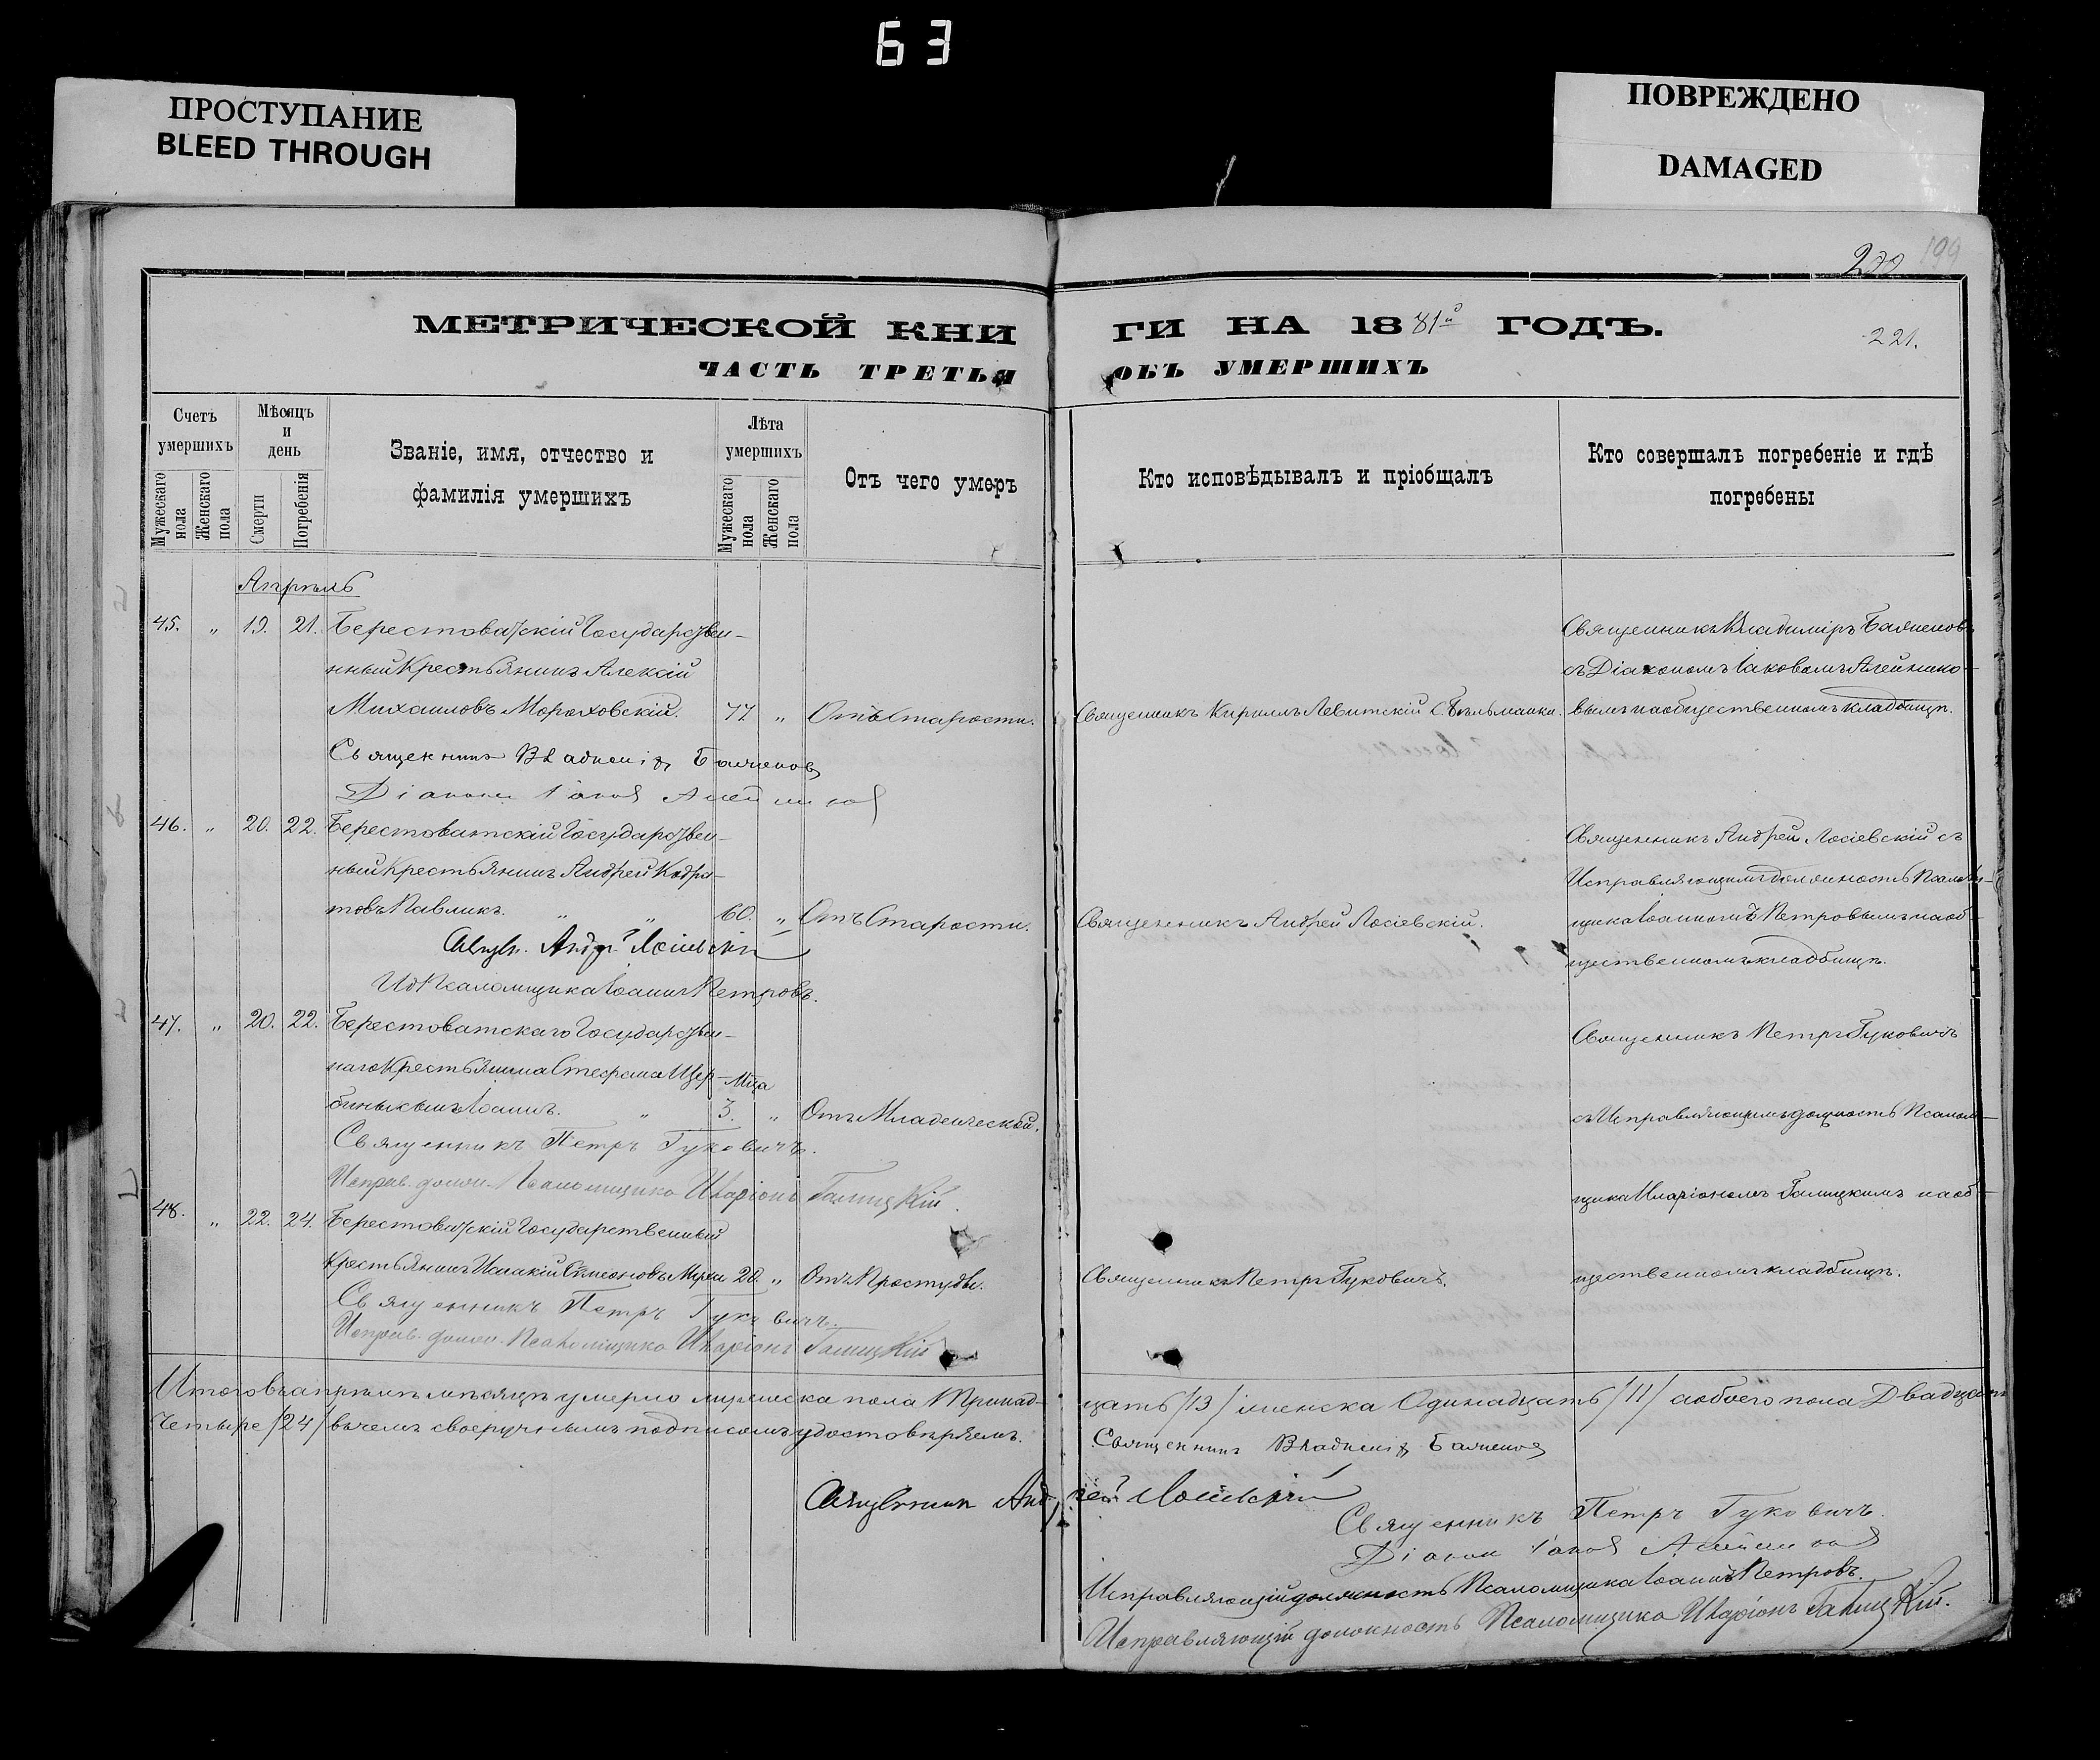 63
ПРОСТУПАНИЕ
BLEED THROUGH
ПОВРЕЖДЕНО
DAMAGED
200 199
МЕТРИЧЕСКОЙ КНИ
ГИ НА 1881й ГОДЪ.
221.
ЧАСТЬ ТРЕТЬЯ
ОБЪ УМЕРШИХЪ
Счетъ умершихъ
Мужескаго пола
Женскаго пола
Мѣсяцъ и день
Смерти
Погребенія
Званіе, имя, отчество и фамилія умершихъ
Лѣта умершихъ
Мужескаго пола
Женскаго пола
Отъ чего умеръ
Кто исповѣдывалъ и пріобщалъ
Кто совершалъ погребеніе и гдѣ погребены
Апрѣль
45. „ 19. 21. Берестоватскій Государствен-
нный Крестьянинъ Алексій
Михаиловъ Мороховскій. 77 „ Отъ Старости.
Священникъ Кириллъ Левитскій С. Бѣльманки.
Священникъ Владиміръ Баженовъ
съ Діакономъ Іаковомъ Алейнико-
вымъ на общественномъ кладбищѣ.
Священникъ Владиміръ Баженовъ
Діаконъ Іаковъ Алейниковъ
46. „ 20. 22. Берестоватскій Государствен-
ный Крестьянинъ Андрей Кодра-
товъ Павликъ. „ „ 60. „ Отъ Старости.
Священникъ Андрей Лосіевскій.
Священникъ Андрей Лосіевскій съ
Исправляющимъ должность Псалом-
щика Іоанномъ Петровымъ на об-
щественномъ кладбищѣ.
Священ. Андр. Лосіевскій
И д Псаломщика Іоаннъ Петровъ.
47. „ 20. 22. Берестоватскаго Государствен-
наго Крестьянина Стефана Щер-
бины сынъ Іоаннъ. „ Мца 3. „ Отъ Младенческой.
Священникъ Петръ Гуковичъ
съ Исправляющимъ должность Псалом-
щика Иларіономъ Галицкимъ на об-
щественномъ кладбищѣ.
Священникъ Петръ Гуковичъ.
Исправ. должн. Псаломщика Иларіонъ Галицкій.
48. „ 22. 24. Берестоватскій Государственный
Крестьянинъ Исаакій Симеоновъ 20. „ Отъ Простуды.
Священникъ Петръ Гуковичъ.
Священникъ Петръ Гуковичъ.
Исправ. должн. Псаломщика Иларіонъ Галицкій
Итого въ апрѣлѣ мѣсяцѣ умерло мужеска пола Тринад-
цать /13/ женска Одинадцать /11/ а обоего пола Двадцать
Четыре /24/ въ чемъ своеручнымъ подписомъ удостовѣряемъ.
Священникъ Владиміръ Баженовъ
Священникъ Андрей Лосіевскій
Священникъ Петръ Гуковичъ.
Діаконъ Іаковъ Алейниковъ
Исправляющій должность Псаломщика Іоаннъ Петровъ.
Исправляющій должность Псаломщика Иларіонъ Галицкій.